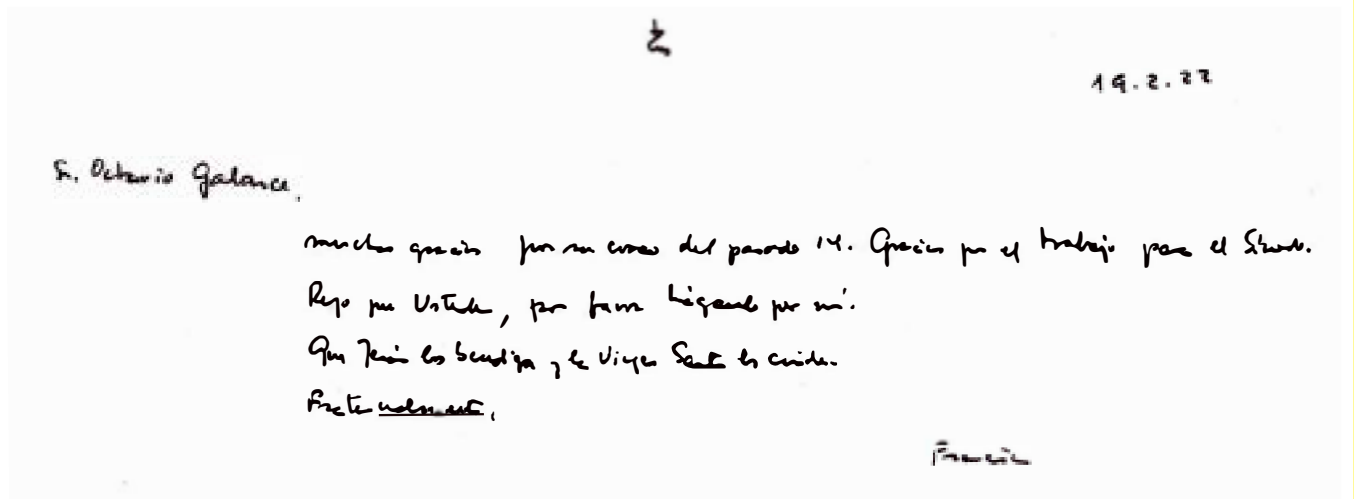 19.2.22
Sr. Octavio Galarce,
muchas gracias por su correo del pasado 14. Gracias por el trabajo para el Sínodo.
Rezo por Ustedes, por favor háganlo por mí.
Que Jesús los bendiga y la Virgen Santa los cuide.
Fraternalmente,
Francisco